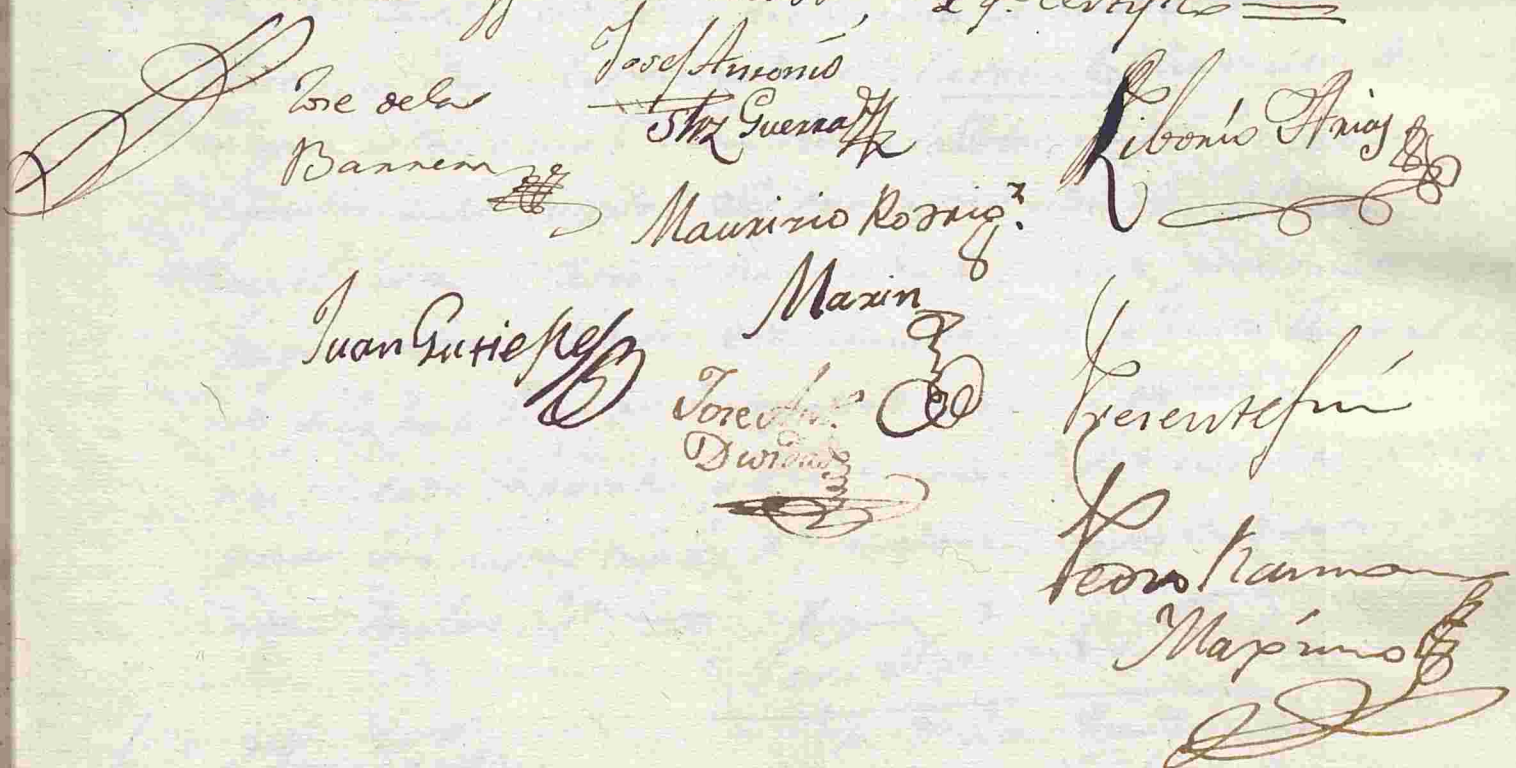 Jose dela
Barrera
Josef Antonio
Guerra
Liborio Arias
Maurizio Rodrig.z
Marin
Juan Gutierres
Jose Ant.o
Presente fui
Pedro Ramon
Maximo